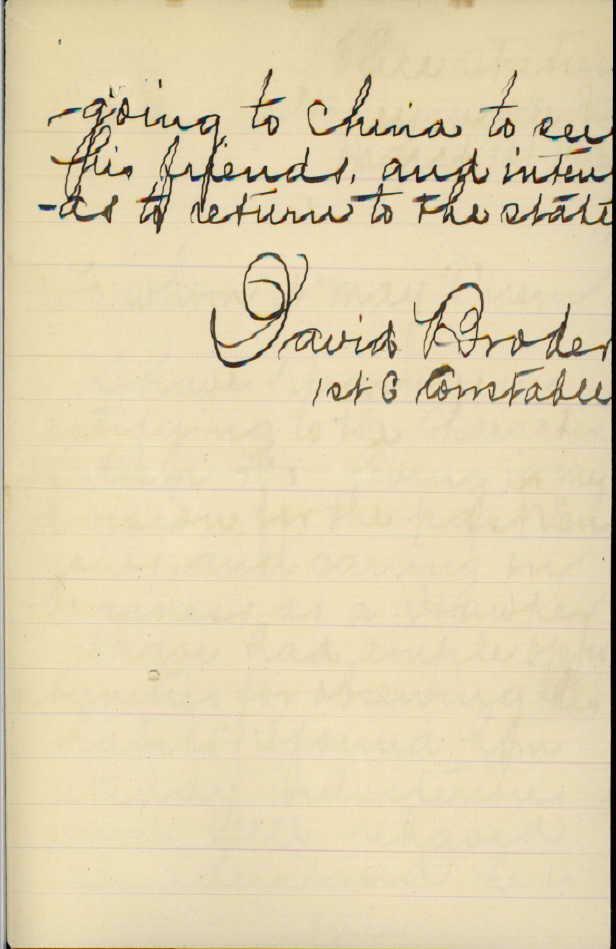 going to China to see
his friends, and inten
-ds to return to the state
David Broder
1st C Constable